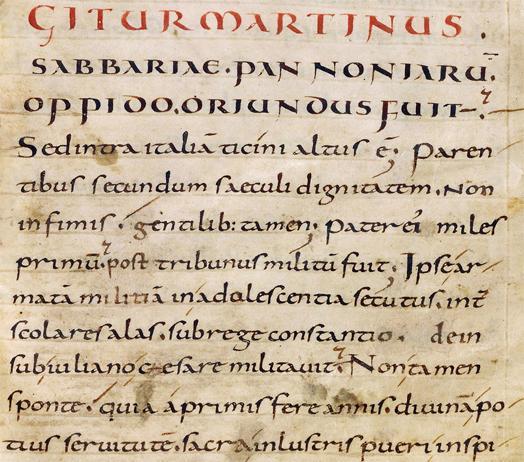 GITUR MARTINUS.
SABBARIAE. PANNONIARŪ.
OPPIDO. ORIUNDUS FUIT.
Sed intra italiā ticini altus ē; Paren
tibus secundum saeculi dignitatem. Non
infimis. gentilib: tamen; Pater ei miles
primū. post tribunus militū fuit; Ipse ar
matā militiā in adolescentia secutus. int̄
scolares alas. sub rege constantio. dein
sub iuliano caesare militavit. Non tamen
sponte. quia a primis fere annis. divinā po
tius servitutē. sacra inlustris pueri inspi